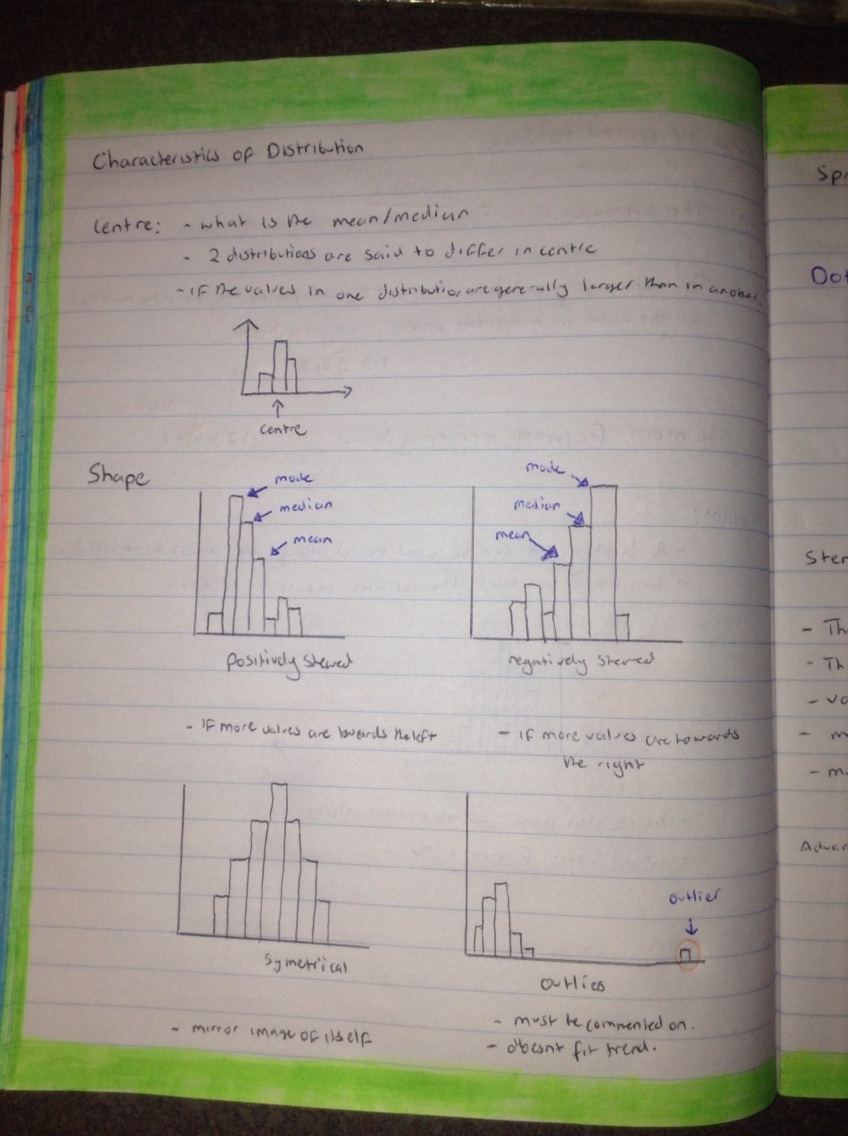 Characteristics of Distribution
Centre: - what is the mean/median
- 2 distributions are said to differ in centre
- if the values in one distribution are generally larger than in another.
centre
Shape
mode
median
mean
mode
median
mean
positively skewed
negatively skewed
- if more values are towards the left
- if more values are towards
the right
outlier
symetrical
outliers
- mirror image of itself
- must be commented on.
- doesnt fit trend.
Spr
Dot
Stem
- Th
- Th
- va
- m
- m
Advan